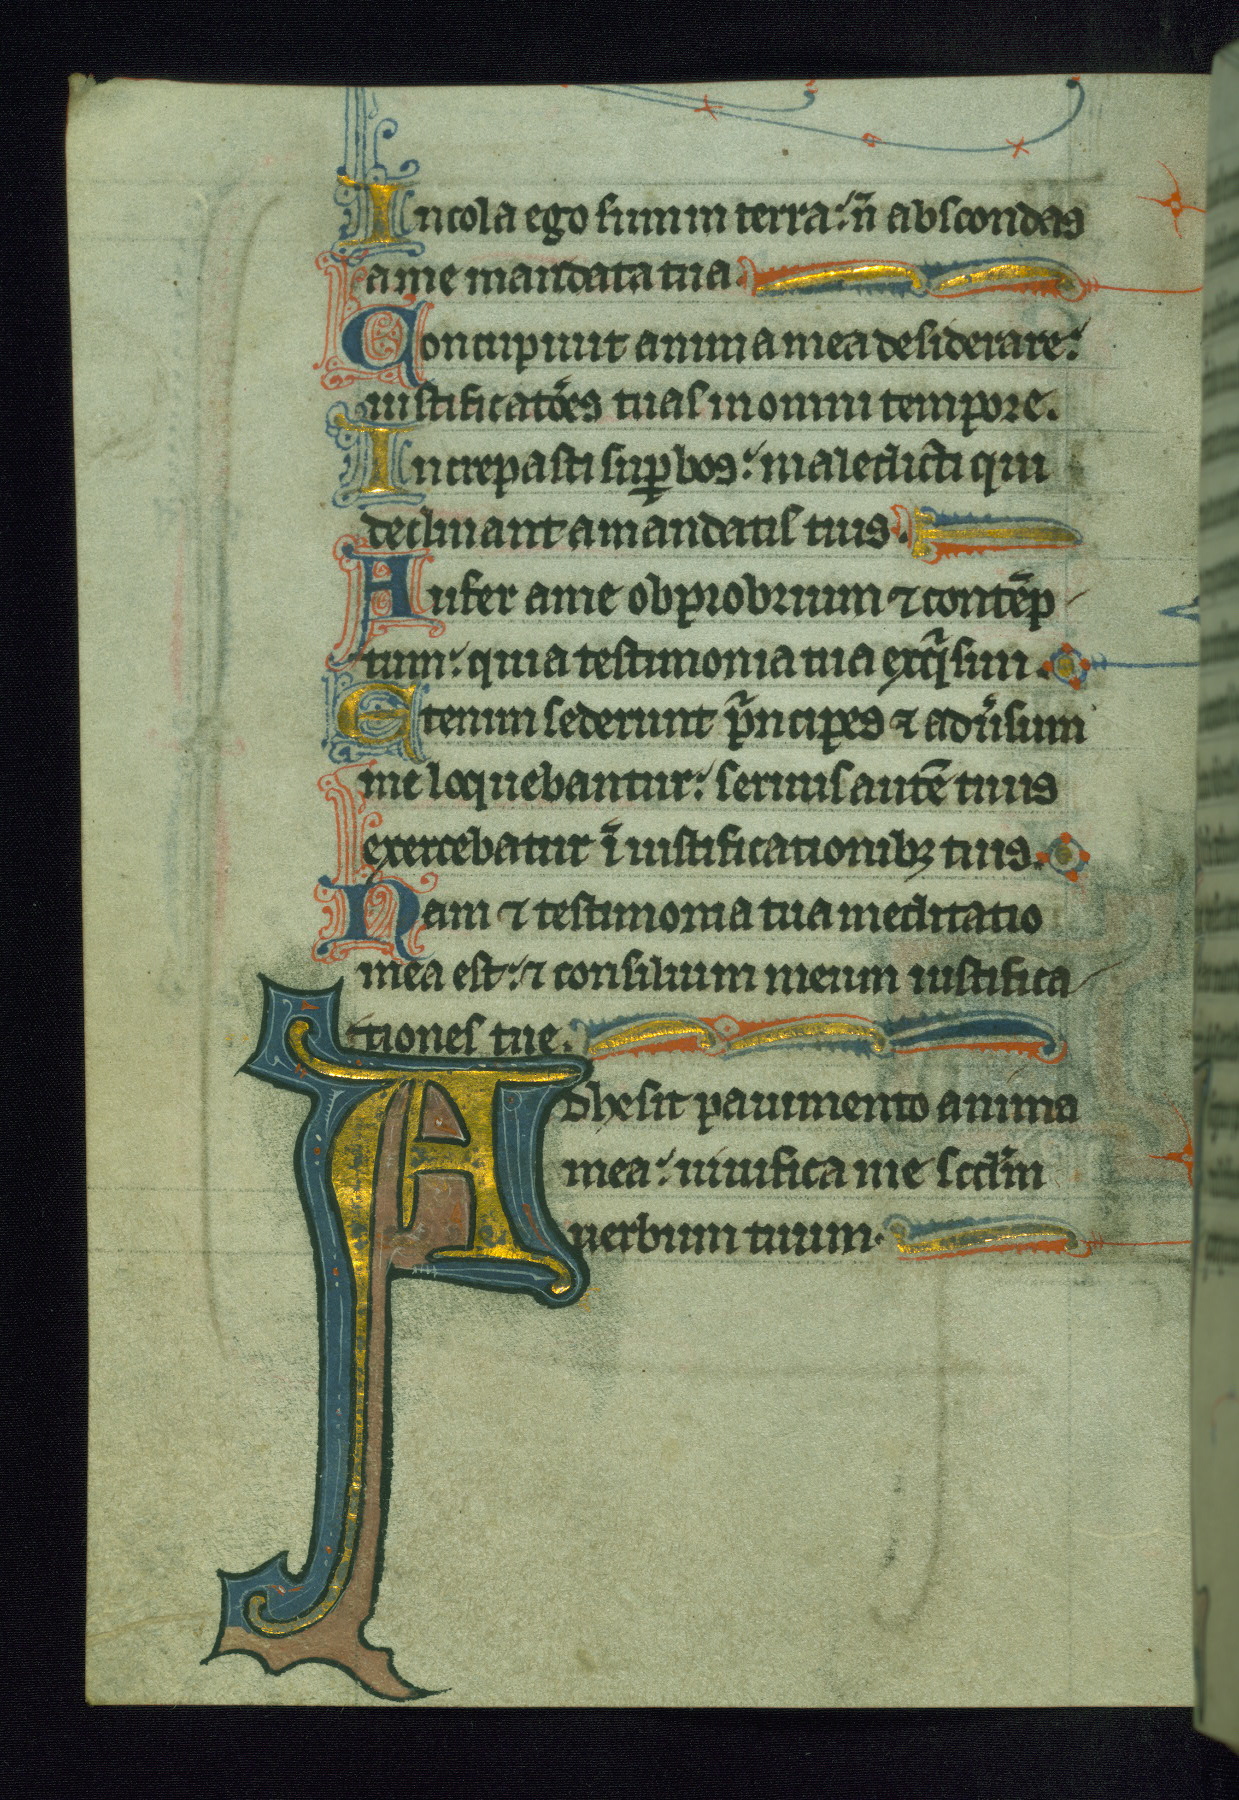 Incola ego sum in terra: n̄ abscondas
a me mandata tua.
Concupiuit anima mea desiderare:
iustificatōes tuas in omni tempore.
Increpasti suꝑbos: maledicti qui
declinant a mandatis tuis.
Aufer a me obprobrium ⁊ contēp
tum: quia testimonia tua exqⁱsiui.
Etenim sederunt pⁱncipes ⁊ adu̾sum
me loquebantur: seruus autē tuus
exercebatur ī iustificationibꝫ tuis.
Nam ⁊ testimonia tua meditatio
mea est: ⁊ consilium meum iustifica
tiones tue.
Adhesit pauimento anima
mea: uiuifica me scd̄m
uerbum tuum.